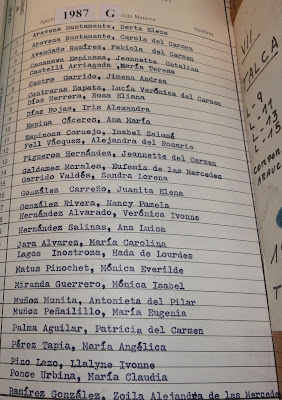 1987 G
Apellido Materno Nombres
Aravena Bustamante, Berta Elena
Aravena Bustamante, Carola del Carmen
Avendaño Ramírez, Fabiola del Carmen
Casanova Espinosa, Jeannette Catalina
Castelli Arriagada, María Teresa
Castro Garrido, Jimena Andrea
Contreras Zapata, Lucía Verónica del Carmen
Díaz Herrera, Rosa Eliana
Díaz Rojas, Iris Alexandra
Espina Cáceres, Ana María
Espinoza Cornejo, Isabel Salomé
Fell Vásquez, Alejandra del Rosario
Figueroa Hernández, Jeannette del Carmen
Galdames Morales, Eufemia de las Mercedes
Garrido Valdés, Sandra Lorena
González Carreño, Juanita Elena
González Rivera, Nancy Pamela
Hernández Alvarado, Verónica Ivonne
Hernández Salinas, Ana Luisa
Jara Alvarez, María Carolina
Lagos Inostroza, Hada de Lourdes
Matus Pinochet, Mónica Everilde
Miranda Guerrero, Mónica Isabel
Muñoz Munita, Antonieta del Pilar
Muñoz Peñailillo, María Eugenia
Palma Aguilar, Patricia del Carmen
Pérez Tapia, María Angélica
Pino Lazo, Llalyne Ivonne
Ponce Urbina, María Claudia
Ramírez González, Zoila Alejandra de las Mercede